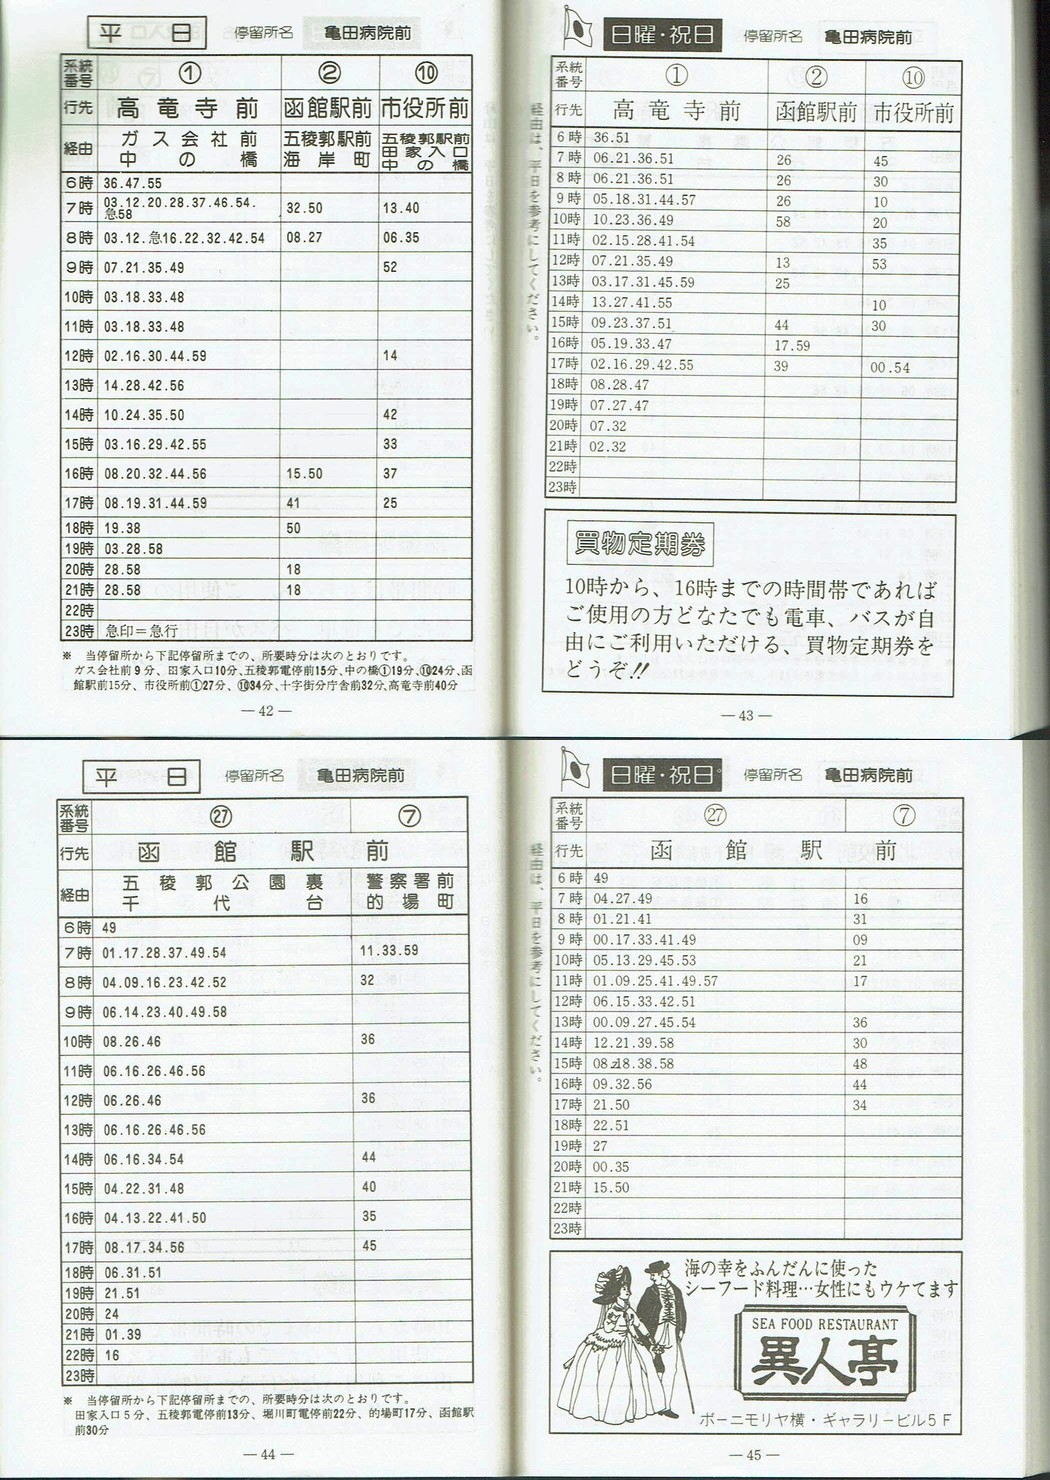 平日 停留所名 亀田病院前
系統番号 ① ② ⑩
行先 高竜寺前 函館駅前 市役所前
経由 ガス会社前 中の橋 五稜郭駅前 海岸町 五稜郭駅前 田家入口 中の橋
6時 36.47.55
7時 03.12.20.28.37.46.54.急58 32.50 13.40
8時 03.12.急16.22.32.42.54 08.27 06.35
9時 07.21.35.49 52
10時 03.18.33.48
11時 03.18.33.48
12時 02.16.30.44.59 14
13時 14.28.42.56
14時 10.24.35.50 42
15時 03.16.29.42.55 33
16時 08.20.32.44.56 15.50 37
17時 08.19.31.44.59 41 25
18時 19.38 50
19時 03.28.58
20時 28.58 18
21時 28.58 18
22時
23時 急印=急行
※ 当停留所から下記停留所までの、所要時分は次のとおりです。
ガス会社前9分、田家入口10分、五稜郭電停前15分、中の橋①19分、⑩24分、函
館駅前15分、市役所前①27分、⑩34分、十字街分庁舎前32分、高竜寺前40分
― 42 ―
日曜・祝日 停留所名 亀田病院前
経由は、平日を参考にしてください。
系統番号 ① ② ⑩
行先 高竜寺前 函館駅前 市役所前
6時 36.51
7時 06.21.36.51 26 45
8時 06.21.36.51 26 30
9時 05.18.31.44.57 26 10
10時 10.23.36.49 58 20
11時 02.15.28.41.54 35
12時 07.21.35.49 13 53
13時 03.17.31.45.59 25
14時 13.27.41.55 10
15時 09.23.37.51 44 30
16時 05.19.33.47 17.59
17時 02.16.29.42.55 39 00.54
18時 08.28.47
19時 07.27.47
20時 07.32
21時 02.32
22時
23時
買物定期券
10時から、16時までの時間帯であれば
ご使用の方どなたでも電車、バスが自
由にご利用いただける、買物定期券を
どうぞ!!
― 43 ―
平日 停留所名 亀田病院前
系統番号 ㉗ ⑦
行先 函館駅前
経由 五稜郭公園裏 千代台 警察署前 的場町
6時 49
7時 01.17.28.37.49.54 11.33.59
8時 04.09.16.23.42.52 32
9時 06.14.23.40.49.58
10時 08.26.46 36
11時 06.16.26.46.56
12時 06.26.46 36
13時 06.16.26.46.56
14時 06.16.34.54 44
15時 04.22.31.48 40
16時 04.13.22.41.50 35
17時 08.17.34.56 45
18時 06.31.51
19時 21.51
20時 24
21時 01.39
22時 16
23時
※ 当停留所から下記停留所までの、所要時分は次のとおりです。
田家入口5分、五稜郭電停前13分、堀川町電停前22分、的場町17分、函館駅
前30分
― 44 ―
日曜・祝日 停留所名 亀田病院前
経由は、平日を参考にしてください。
系統番号 ㉗ ⑦
行先 函館駅前
6時 49
7時 04.27.49 16
8時 01.21.41 31
9時 00.17.33.41.49 09
10時 05.13.29.45.53 21
11時 01.09.25.41.49.57 17
12時 06.15.33.42.51
13時 00.09.27.45.54 36
14時 12.21.39.58 30
15時 08.18.38.58 48
16時 09.32.56 44
17時 21.50 34
18時 22.51
19時 27
20時 00.35
21時 15.50
22時
23時
海の幸をふんだんに使った
シーフード料理…女性にもウケてます
SEA FOOD RESTAURANT
異人亭
ボーニモリヤ横・ギャラリービル5F
― 45 ―